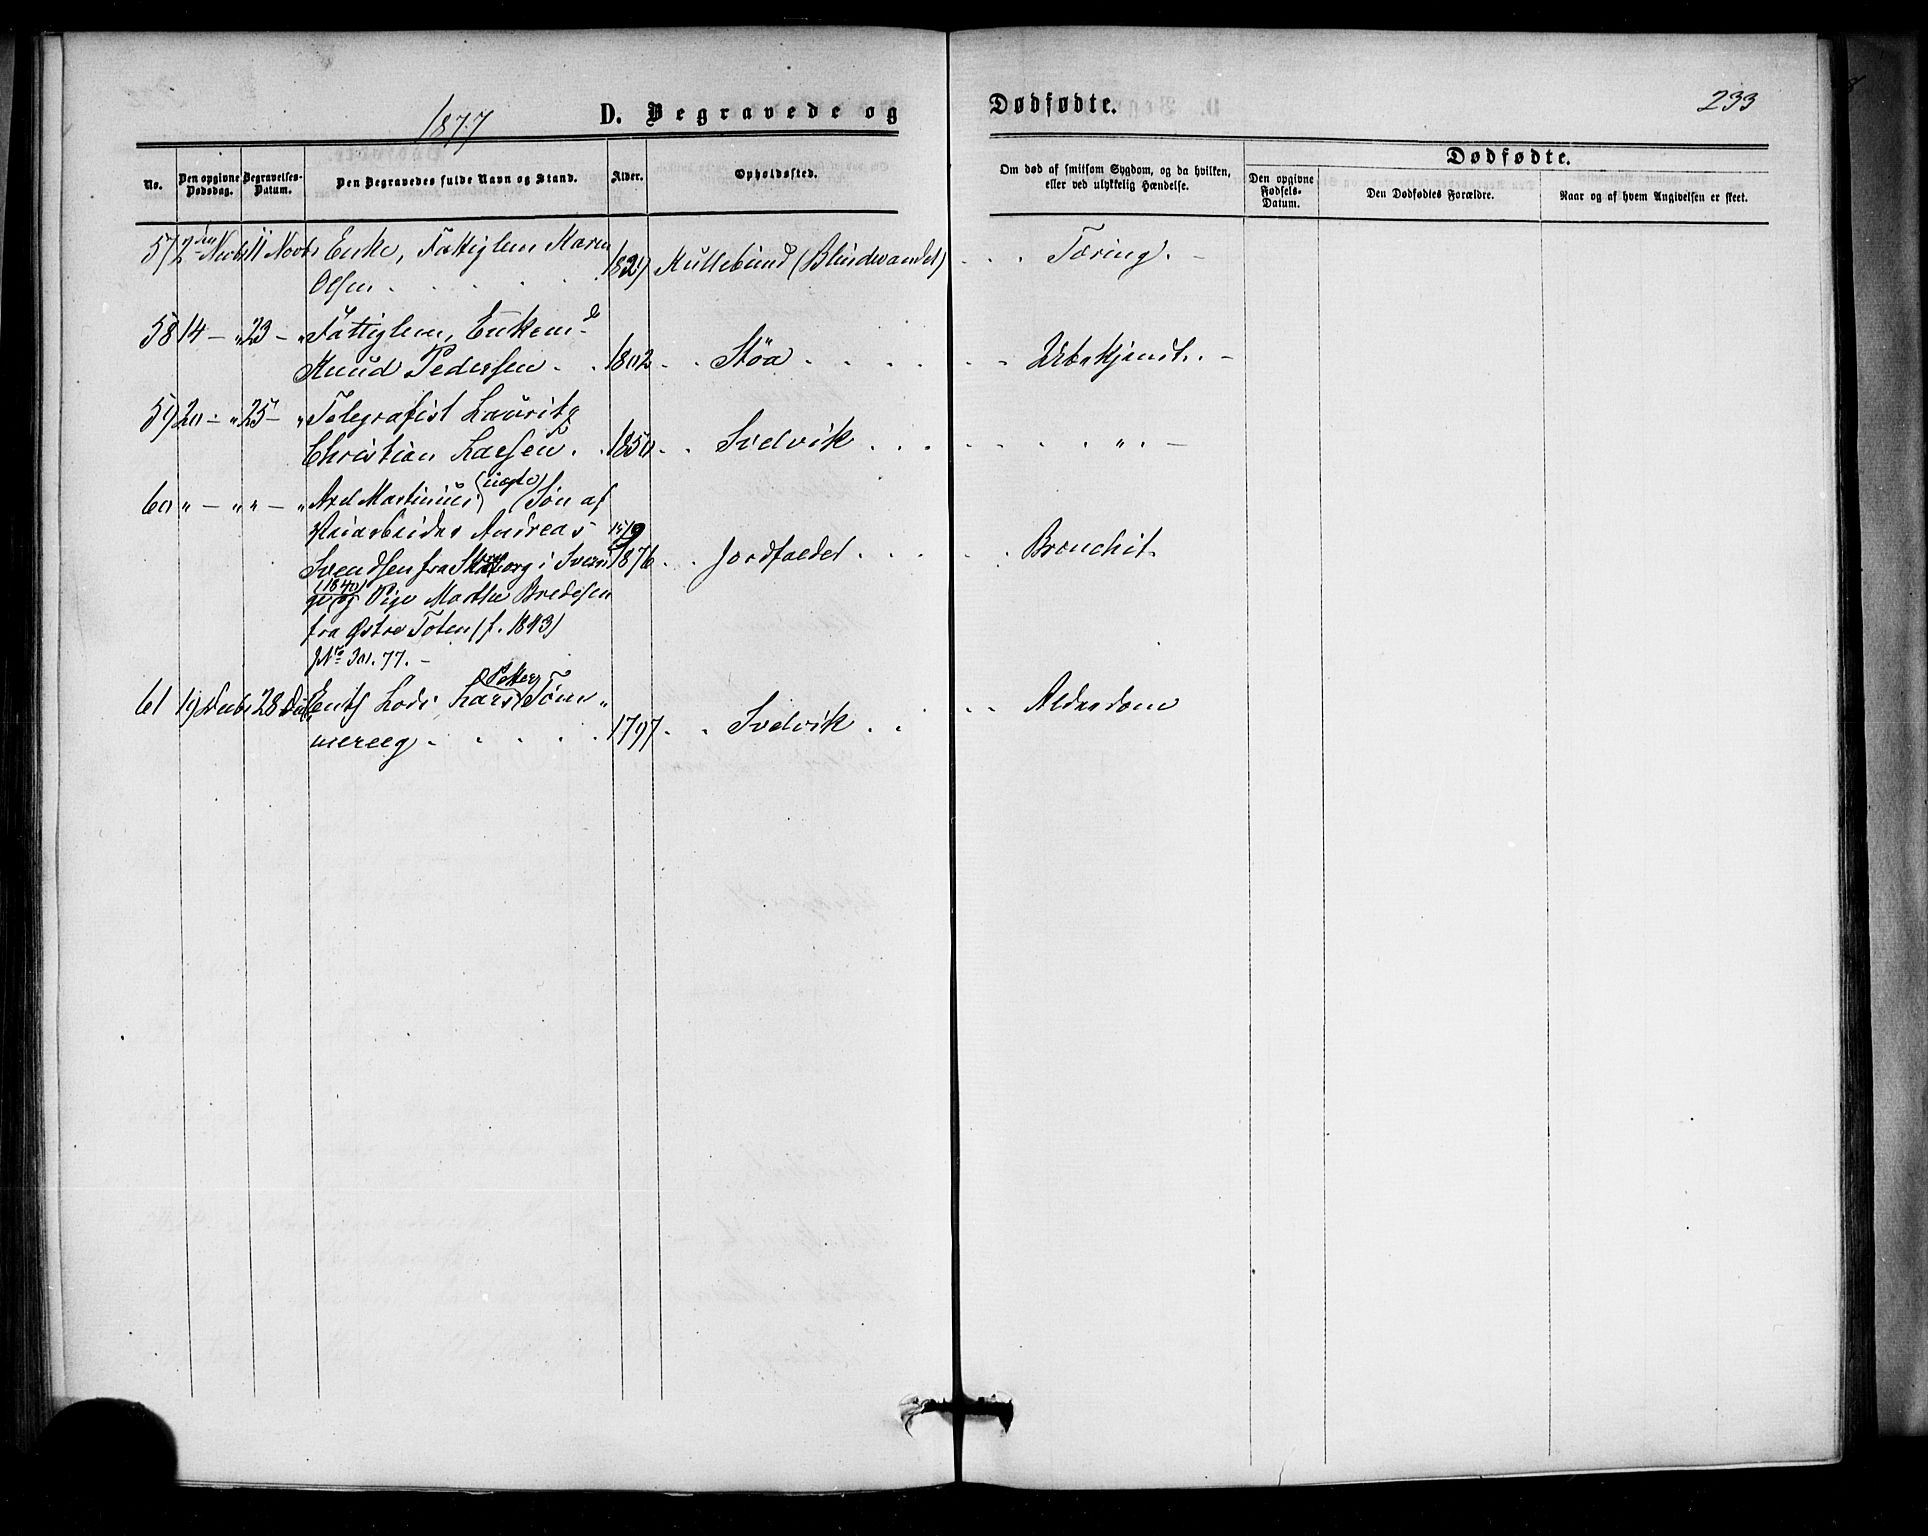 1877
D. Begravede og
Dødfødte.
233
No.
Den opgivne Dødsdag.
Begravelses-Datum.
Den Begravedes fulde Navn og Stand.
Alder.
Opholdssted.
Om død af smitsom Sygdom, og da hvilken, eller ved ulykkelig Hændelse.
Dødfødte.
Den opgivne Fødsels-Datum.
Den Dødfødtes Forældre.
Naar og af hvem Angivelsen er skeet.
57 2den Novb 11 Novb. Enke, Fattiglem Karen
Olsen . . . . 1829 Kullebund (Blindevandet) . . . Tæring. -
58 14 - " 23 - " Fattiglem, Enkemd
Knud Pedersen . . 1802 . . Støa . . . . . Ubekjendt. -
59 20 - " 25 - " Telegrafist Lauritz
Christian Larsen . . 1850 . . Svelvik . . . . . . " . -
60 " - " " - " Axel Martinius (uægte) Søn af
Veiarbeider Andreas 15/9
Svendsen fra Skaraborg i Sveri 1876 . . Jordfaldet . . . . . Bronchit.
ge (1840) og Pige Marthe Bredesen
fra Østre Toten (f. 1843)
JNo 301. 77. -
61 19 Decb 28 Dec Lods Lars Petter Tøm-
mereeg . . . . . 1797 . . Svelvik . . . . Alderdom